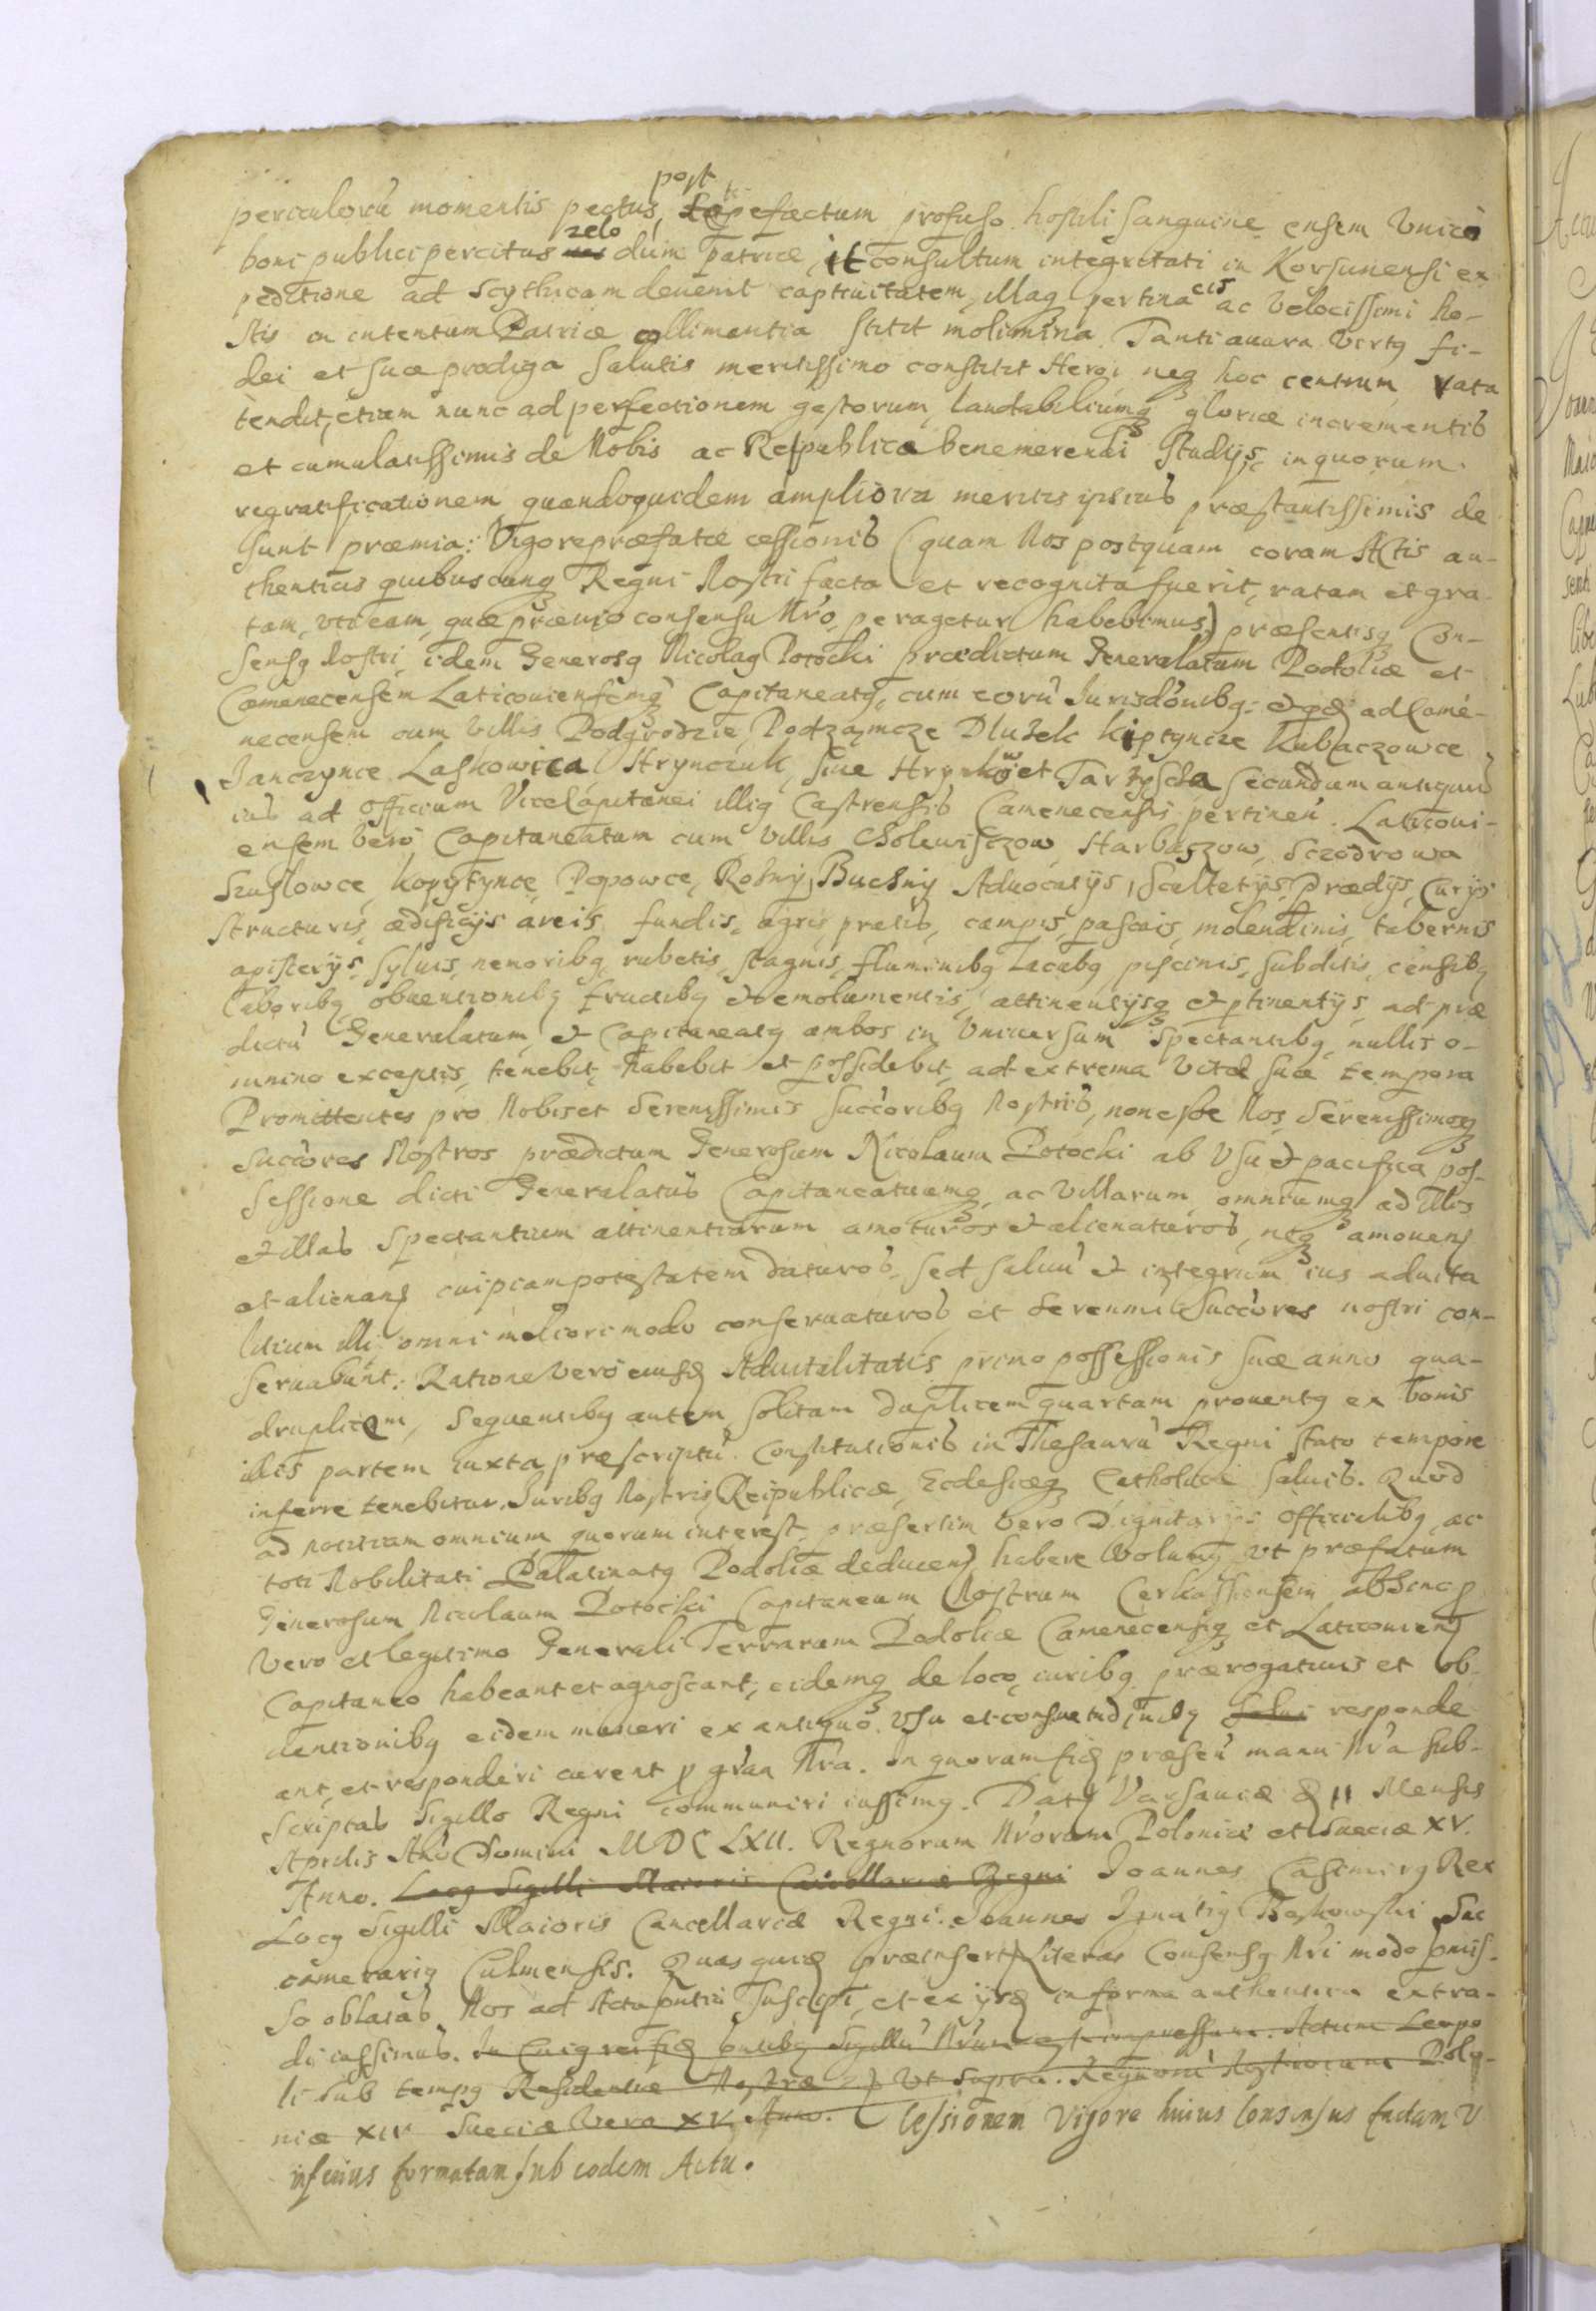 periculorũ momentis pectus, post tepefactum profuso hostili sanguine ensem Unicè
boni publici percitus zelo dum Patriæ, it consultum integritati in Korsunensi ex
peditione ad Scythicam devenit captivitatem, illaq pertinacis ac velocissimi ho-
stis in intentum Patriæ collimantia stitit molimina. Tanti avara virtq fi-
dei et suæ prodiga salutis meritissimo constitit Heroi neq hoc centrum rata
tendit, etiam nunc ad perfectionem gestorum, laudabiliumq gloriæ incrementis
et cumulatissimis de Nobis ac Republica benemerendi studijs, in quorum
regratificationem quandoquidem ampliora meritis ipsius præstantissimis de
sunt præmia: Vigore præfatæ cessionis (quam Nos postquam coram Actis au-
thenticis quibuscunq Regni Nostri facta et recognita fuerit, ratam et gra-
tam, uti eam, quæ prævio consensu Nr̃o peragetur habebimus) præsentisq Con-
sensq Nostri, idem Generosq Nicolaq Potocki prædictum Generalatum Podoliæ et
Camenecensem Laticouiensemq Capitaneatq, cum eorũ Jurisdōnibq: et qd ad Came-
necensem cum villis Podgrodzie, Podzamcze Dlużek Kiptyncze Kubaczowce
Janczynce Laskowica Hrynczuk, siue Hrynkow et Tarzyscha secundum antiquũ
ius ad officium ViceCapitanei illiq Castrensis Camenecensis pertineñ. Laticoui-
ensem vero Capitaneatum cum villis Cholewiſczow Harbuszow, Sczodrowa
Szuslowce, Kopytynce, Popowce, Rożny, Buchny Advocatijs, Scultetijs, Prædijs, Curijs
structuris, ædificijs areis fundis, agris pratis, campis, pascuis, molendinis, tabernis
apisterijs, syluis, nemoribq, rubetis, stagnis, fluminibq lacubq piscinis, subditis, censibq
laboribq obuentionibq fructibq et emolumentis, attinentijsq et ptinentijs, ad præ
dictũ Generalatum, et Capitaneatq ambos in Vniuersum spectantibq, nullis o-
mnino exceptis, tenebit, habebit et possidebit, ad extrema vitæ suæ tempora
Promittentes pro Nobis et Serenissimis Succōribq Nostris, non esse Nos, Serenissimosq
Succōres Nostros prædictum Generosum Nicolaum Potocki ab Vsu et pacifica pos-
sessione dicti Generalatus Capitaneatuumq, ac Villarum, omniumq ad illos
et illas spectantium attinentiarum amoturos et alienaturos, neq amouend
et alienand cuipiam potestatem daturos, sed saluũ et integrum ius aduita
litium illi omni meliori modo conseruaturos et Serenmi Succōres nostri con-
seruabunt: Ratione vero eiusd Aduitalitatis primo possessionis suæ anno qua-
druplicem, sequentibq autem, solitam duplicem quartam prouentq ex bonis
illis partem iuxta præscriptũ Constitutionis in Thesaurũ Regni stato tempore
inferre tenebitur. Juribq Nostris, Reipublicæ, Ecclesiæq Catholicæ saluis. Quod
ad notitiam omnium quorum interest, præsertim vero Dignitarijs Officialibq, ac
toti Nobilitati Palatinatq Podoliæ deducend habere volumq, ut præfatum
Generosum Nicolaum Potocki Capitaneum Nostrum Cerkassiensem abhinc p
vero et legitimo Generali Terrarum Podoliæ Camenecensiq et Laticouien
Capitaneo habeant et agnoscant, eidemq de loco, iuribq prærogatiuis et ob-
uentionibq eidem muneri ex antiquo Vsu et consuetudinibq responde
ant, et responderi curent p gr̃an Nr̃a. In quorum fid præseñ manu Nr̃a sub-
scriptas Sigillo Regni communiri iussimq. Datq Varsauiæ D 11 Mensis
Aprilis Ãno Domini MDCLXII. Regnorum Nr̃orum Poloniæ et Sueciæ XV.
Anno. Locq Sigilli Maioris Cancellariæ Regni Joannes Casimirq Rex
Locq Sigilli Maioris Cancellariæ Regni. Joannes Ignatiq Bąkowski Suc
camerariq Culmensis. Quas quid præinsert literas Consensq Nr̃i modo pmis-
so oblatas, Nos ad Acta pntia Suscipi, et ex ijsd in forma authentica extra-
di iussimus. In Cuiq rei fid pntibq Sigillũ Nr̃um est impressum. Actum Leopo
li sub tempq Residentiæ Nostræ D ut supra. Regnorũ Nostrorum Polo-
niæ XIV Sueciæ Vero XV Anno. Cessionem vigore huius Consensus factam V
inferius formatam sub eodem Actu.